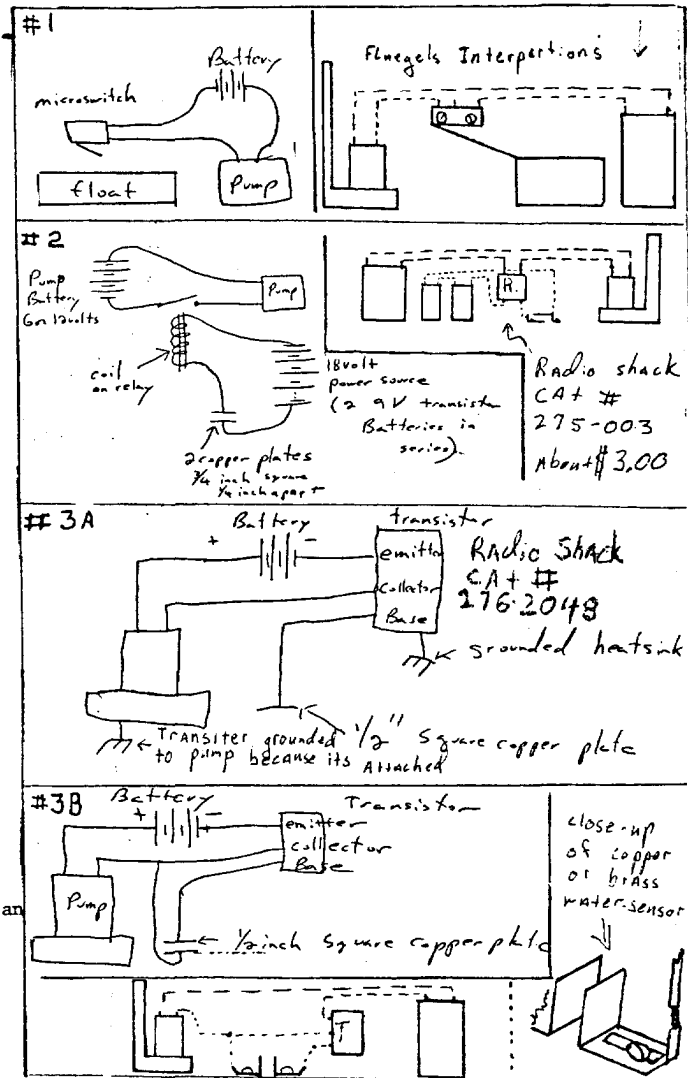 #1
Battery
microswitch
float
Pump
Fluegels Interpertions
#2
Pump
Battery
6 or 12 volts
Pump
coil
on relay
2 copper plates
3/4 inch square
1/4 inch apart
18 volt
power source
(2 9V transistor
Batteries in
series).
R
Radio shack
CAt #
275-003
About $3.00
#3A
Battery
+ -
transistor
emitter
collector
Base
RAdio ShAck
CAt #
276-2048
grounded heatsink
TrAnsiter grounded
to pump because its AttAched
1/2" Square copper plate
#3B
Battery
+ -
Transistor
emitter
collector
Base
Pump
1/2 inch Square copper plate
an
close-up
of copper
or brAss
water-sensor
T